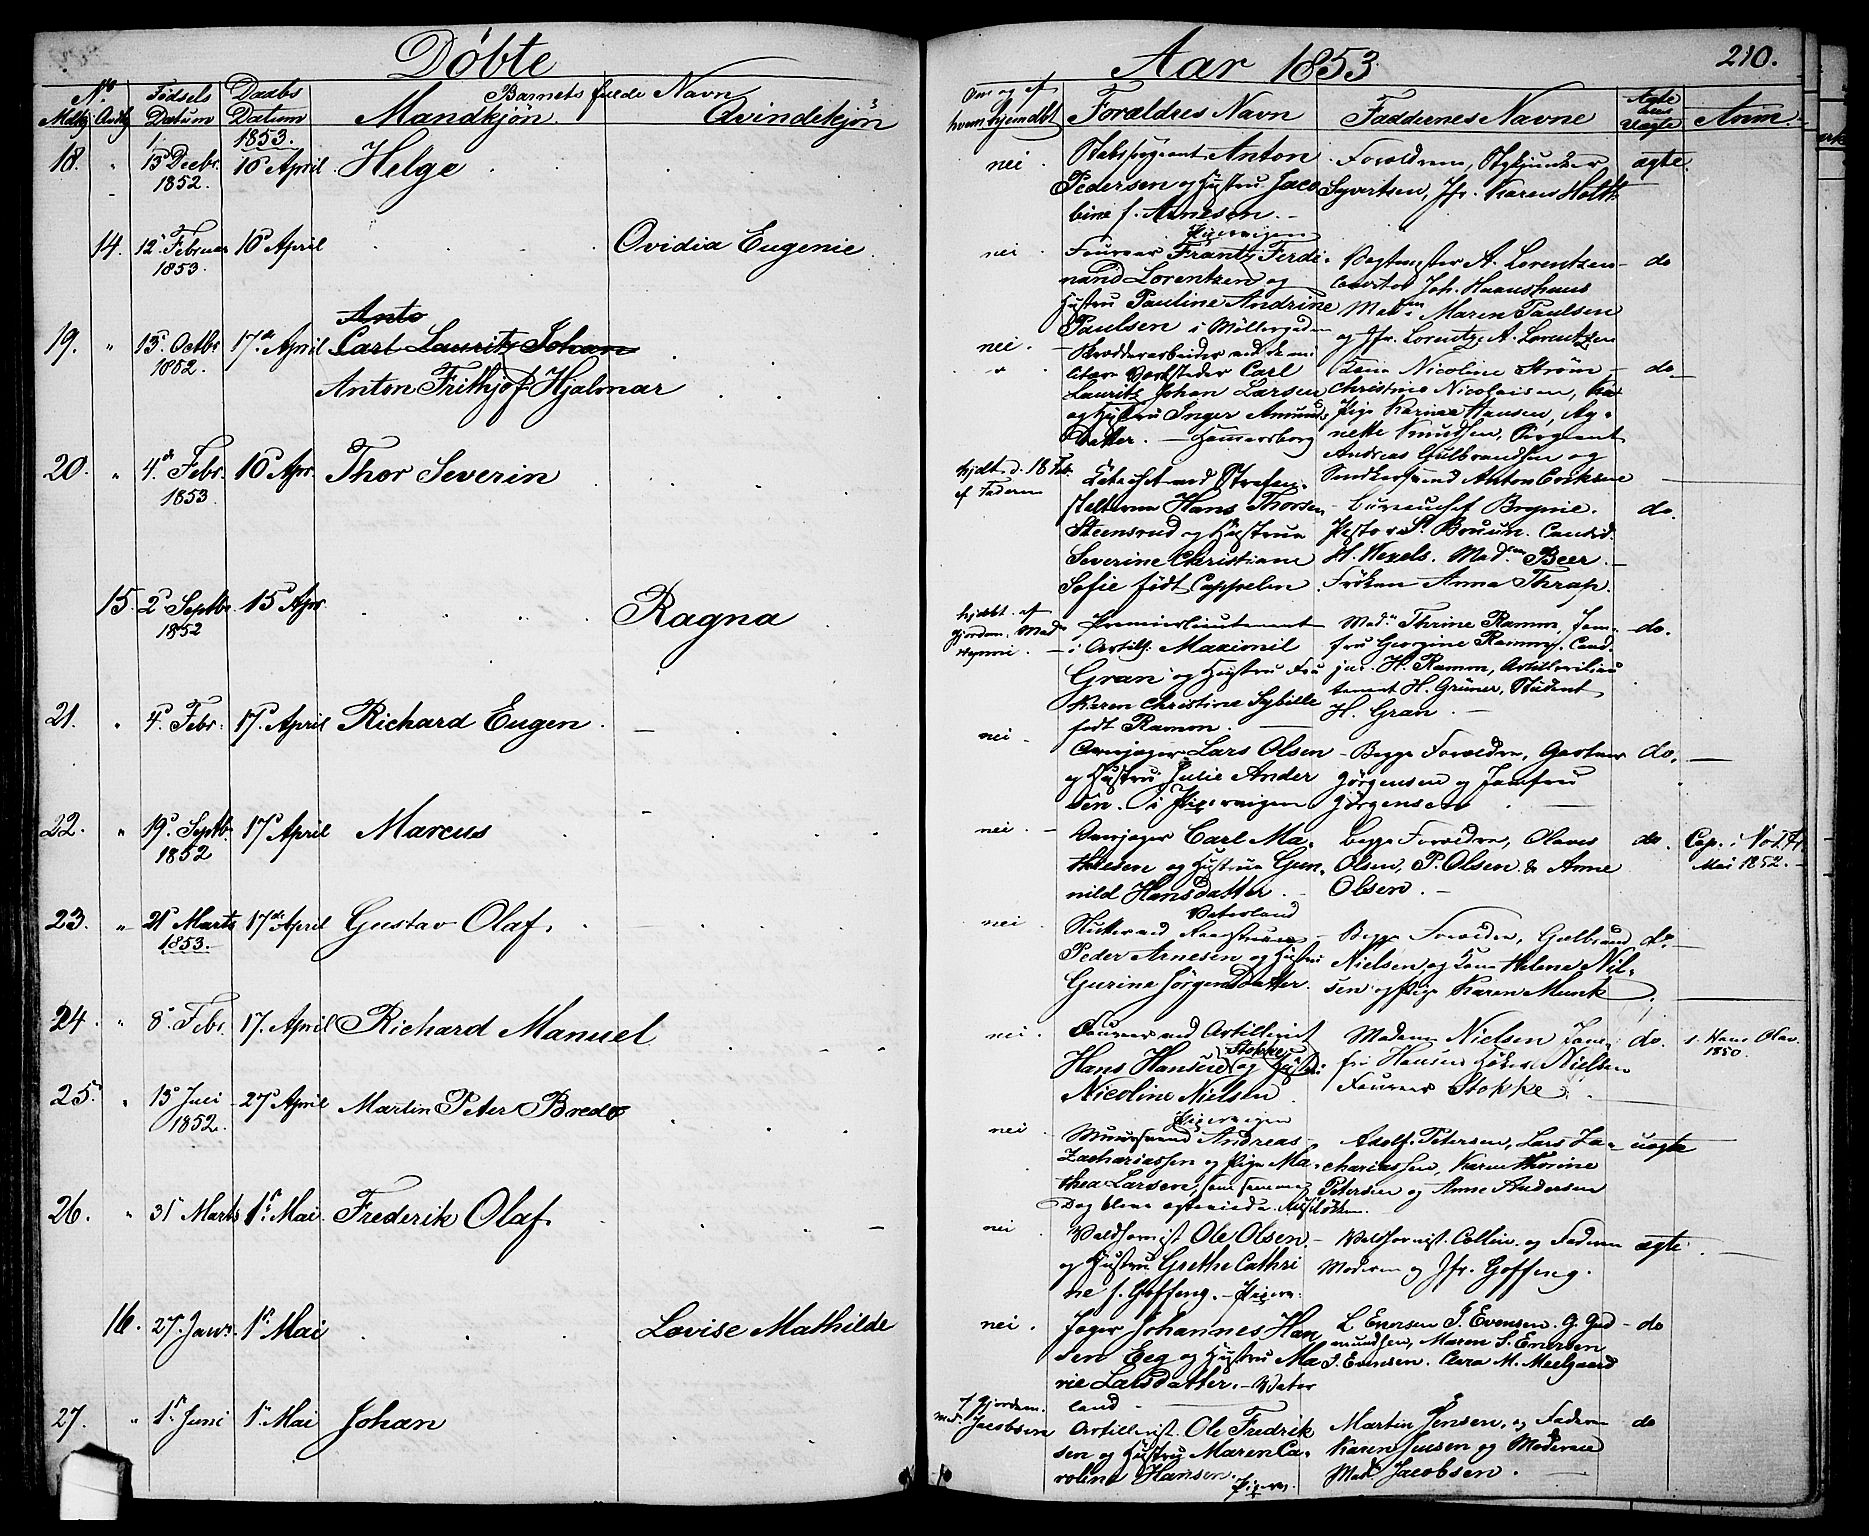 Døbte
Aar 1853.
210.
No Mdkj. Qvdkj.
Fødsels Datum
Daabs Datum
Barnets fulde Navn
Mandkjøn. Qvindekjøn
Om og af hvem hjemdøbt
Forældres Navn
Faddernes Navne
Ægte eller Uægte
Anm.
1853.
18. " 13 Decbr. 1852. 16 April Helge
nei.
Anton
Pedersen og Hustru Jaco
bine f. Arnesen.
Forældrene,
Syvertsen, Jfr. Karen Holth
ægte.
14. 12 Februar 1853. 16 April Ovidia Eugenie
nei
Pipervigen
Fourer Frantz Ferdi-
nand Lorentzen og
Hustru Pauline Andrine
Paulsen i Møllergaden
Vagtmester A. Lorentzen
Joh. Haanshuus
Madm Maren Paulsen
og Jfr. Lorentze A. Lorentzen
do
19. " 13. Octbr 1852. 17de April
Anto
Carl Lauritz Johan
Anton Frithjof Hjalmar
nei.
Skrædderarbeider ved de mi
litære Værksteder Carl
Lauritz Johan Larsen
og Hustru Inger Amunds
Datter. - Hammersborg
Kone Nicoline Strøm
Christine Nicolaisen,
Pige Karine Hansen, Ag-
nette Knudsen, Sergeant
Andreas Gulbrandsen og
Anton Eriksen
do
20. " 4de Febr. 1853 16 Apr. Thor Severin
hjdt. d. 18 Feb.
af Faderen
ved Strafan-
stalterne Hans Thorsen
Steensrud og Hustrue
Severine Christiane
Sofie født Cappelen
Bureauchef Brynie.
Pastor S. Bruun. Candid.
H. Wexels. Madm Beer.
Frøken Anna Thrap.
do.
15. 2 Septbr. 1852 15 Apr. Ragna
hjdbt. af
Gjordem. Mad
Premierlieutenant
i Artill. Maximil
Gran og Hustru Fru
Karen Christine Sybille
født Ramm.
Mad. Thrine Ramm, Jom-
fru Georgine Ramm, Cand.
jur. H. Ramm, Artillerilieu
tenant H. Grüner, Student
H. Gran.
do.
21. " 4. Febr. 17. April Richard Eugen.
nei
Lars Olsen
og Hustru Julie Ander
sen. i Pipervigen
Begge Forældre, Gartner
Jørgensen og Jomfru
Jørgensen
do.
22. " 19. Septbr. 1852 17 April Marcus
nei.
Carl Ma-
thiesen og Hustrue Gun-
nild Hansdatter.
Begge Forældre, Olaves
Olsen, P. Olsen & Anne
Olsen.
do.
Cop. i
Mai 1852.
23. " 21 Marts 1853. 17de April Gustav Olaf.
nei
Vaterland
Peder Arnesen og Hustru
Gurine Jørgensdatter.
Begge Forældre, Gulbrand
Nielsen, og Kone Helene Niel-
sen og Pige Karen Munk
do
24. " 8. Febr. 17. April Richard Manuel
nei.
Fourer ved Artilleriet
Hans Hansen (Stokke) og Hustru
Nicoline Nielsen
Madame Nielsen Jom-
fru Hansen Nielsen
Fourer Stokke
do.
s. Hans Olav. 1850.
25. " 13 Juli 1852. 27 April Martin Peter Bredo
nei
Pipervigen
Muursvend Andreas
Zachariassen og Pige Ma-
thea Larsen, som samme
Dag bleve ægteviede.
Adolf Petersen, Lars Za-
chariassen, Karen Thorine
Petersen og Anne Andersen
uægte
26. " 31 Marts 1. Mai. Frederik Olaf.
nei
Valdhornist Ole Olsen.
og Hustru Grethe Cathri
ne f. Goffeng. - Piperv.
Valdhornist Collin. og Faderen
Moderen og Jfr. Goffeng.
ægte
16. 27. Janr. 1. Mai Lovise Mathilde
nei.
Jæger Johannes Han
sen Eeg og Hustru Ma
rie Larsdatter. - Vater
land
L Enersen I. Evensen. G. Gud-
mundsen, Maren S. Enersen
I. Evensen. M. Meelgaard
do
27. " 1. Juni 1. Mai Johan
f. Gjordem.
Md. Jacobsen
Artillerist Ole Fredrik
sen og Hustru Maren Ca-
roline Hansen. Piperv.
Martin Jensen, og Faderen
Karen Jensen og Moderen
Mad. Jacobsen.
do